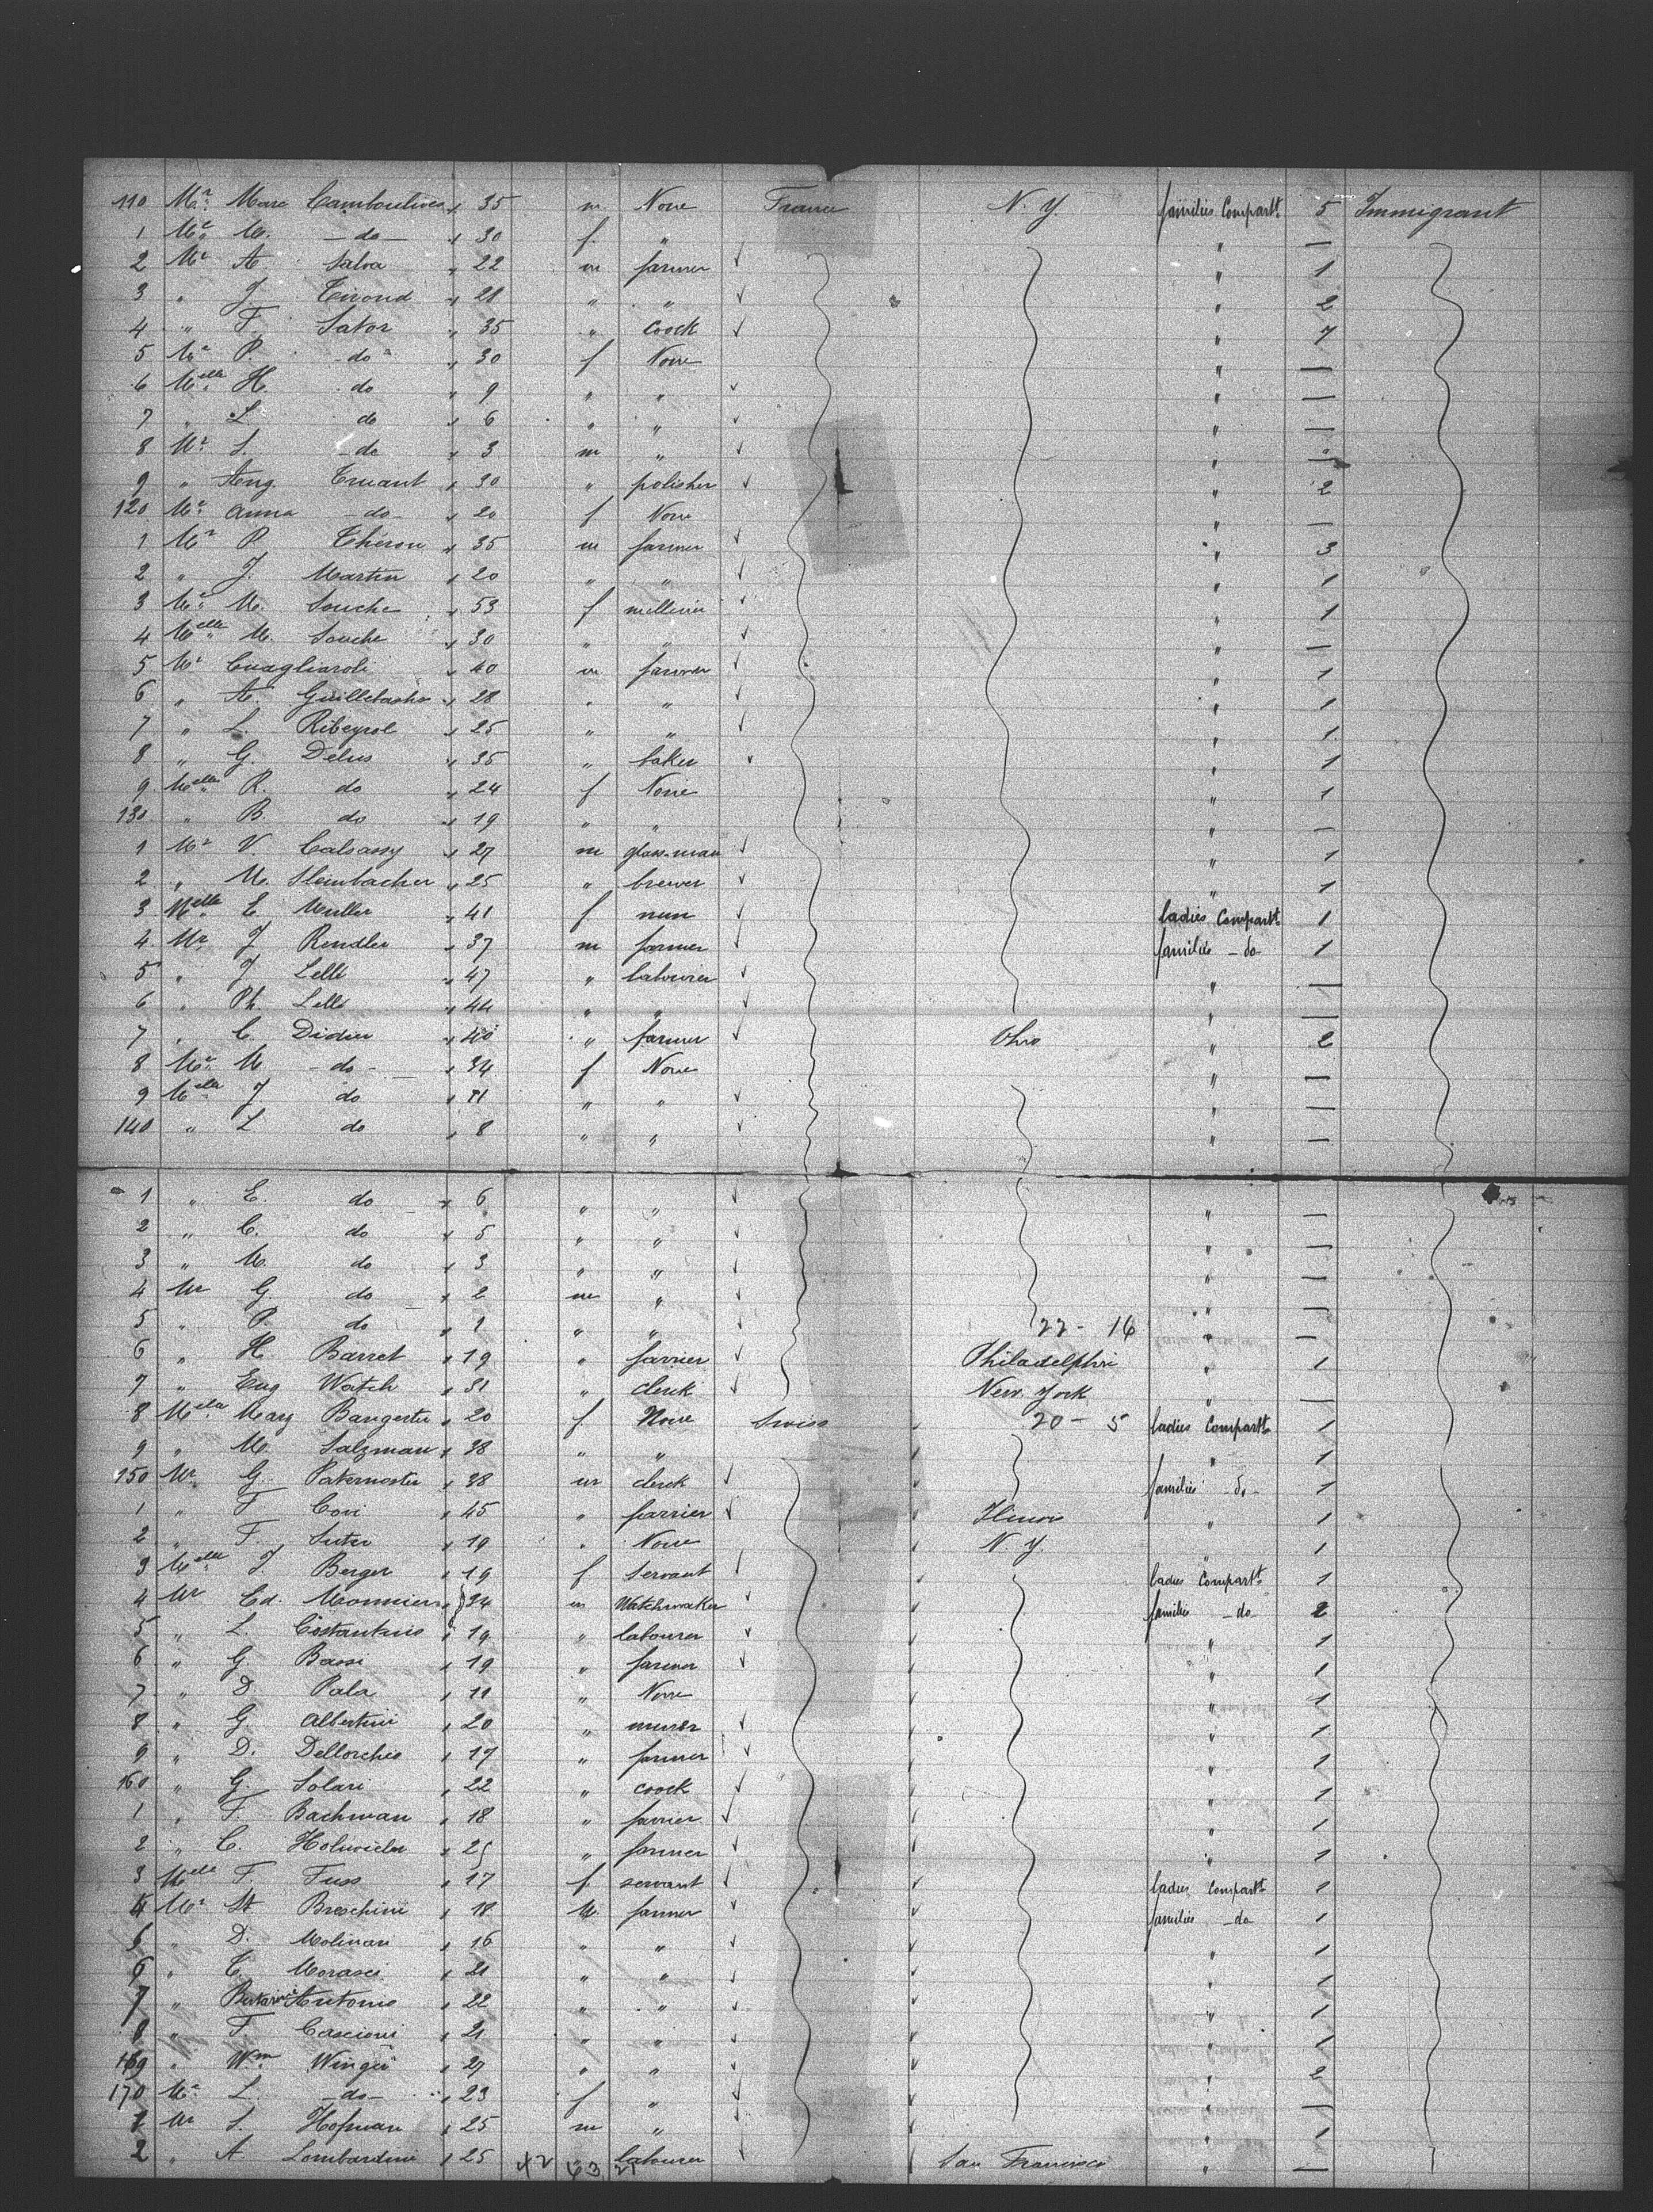 110 Mr. Marc Camboulives " 35 m None France N.Y families Compartt. 5 Immigrant
1 Me. M. -do- " 30 f. " " —
2 Mr A. Salva " 22 m farmer √ " 1
3 " J. Tirond " 21 " " √ " 2
4 " F. Sator " 35 " coock √ " 7
5 Me P. do " 30 f None " —
6 Melle H. do " 9 " " √ " —
7 " L. do " 6 " " √ " —
8 Mr S. do " 3 m " √ " —
9 " Aug. Truant " 30 " polisher √ " 2
120 Me. Anna -do- " 20 f None " —
1 Mr P. Théron " 35 m farmer √ " 3
2 " J. Martin " 20 " " √ " 1
3 Me. M. Souche " 53 f milliner √ " 1
4 Melle M. Souche " 30 " " √ " —
5 Mr Cuagliaroli " 40 m farmer √ " 1
6 " A. " 28 " " √ " 1
7 " L. Ribeyrol " 25 " " √ " 1
8 " G. Délus " 35 " baker √ " 1
9 Melle R. do " 24 f None " 1
130 " B. do " 19 " " " —
1 Mr V. Calsassy " 27 m glass-man √ " 1
2 " M. Steinbacher " 25 " brewer √ " 1
3 Melle E Muller " 41 f nun √ ladies Compartt. 1
4 Mr J Rendler " 37 m farmer √ families -do 1
5 " J Lellé " 47 " labourer √ " —
6 " Ph. Lellé " 44 " " √ " —
7 " C. Didier " 40 " farmer √ Ohio " 2
8 Me. M -do- " 34 f None " —
9 Melle J do " 11 " " √ " —
140 " L do " 8 " " √ " —
1 " E. do " 6 " " √ " —
2 " C. do " 5 " " √ " —
3 " M. do " 3 " " √ " —
4 Mr G. do " 2 m " √ " —
5 " P. do " 1 " " √ 22-16 " —
6 " H. Barret " 19 " farrier √ Philadelphia " 1
7 " Eug Watch " 31 " clerk √ New York " —
8 Melle Mary Bangerter " 20 f None Swiss 20-5 ladies Compartt. 1
9 " M. Salzman " 38 " " " 1
150 Mr G. Paternoster " 38 m clerk √ families -do- 1
1 " F Cori " 45 " farrier √ Illinois " 1
2 " F. Suter " 19 " None N.Y. " 1
3 Melle J. Berger " 19 f servant √ ladies Compartt 1
4 Mr Ed. Monnier " 34 m Watchmaker √ families -do 2
5 " L. Costantino " 19 " labourer √ " 1
6 " G. Bassi " 19 " farmer √ " 1
7 " D Pala " 11 " None " 1
8 " G. Albertini " 20 " miner √ " 1
9 " D. Dellorchio " 17 " farmer √ " 1
160 " G. Solari " 22 " coock √ " 1
1 " F. Bachman " 18 " farrier √ " 1
2 " C. " 25 " farmer √ " 1
3 Melle F. Fuss " 17 f servant √ ladies Compartt 1
4 Mr St Breschini " 18 M. farmer √ families -do 1
5 " D. Molinari " 16 " " √ " 1
6 " C. Morasci " 21 " " √ " 1
7 " Antonio " 22 " " √ " 1
8 " F Cascioni " 21 " " √ " 1
169 " Wm Winger " 27 " " √ " 2
170 Me L. -do- " 23 f " √ " —
1 Mr S. Hofman " 25 m " √ " 1
2 " A. Lombardini " 25 labourer √ San Francisco " —
42 63 21